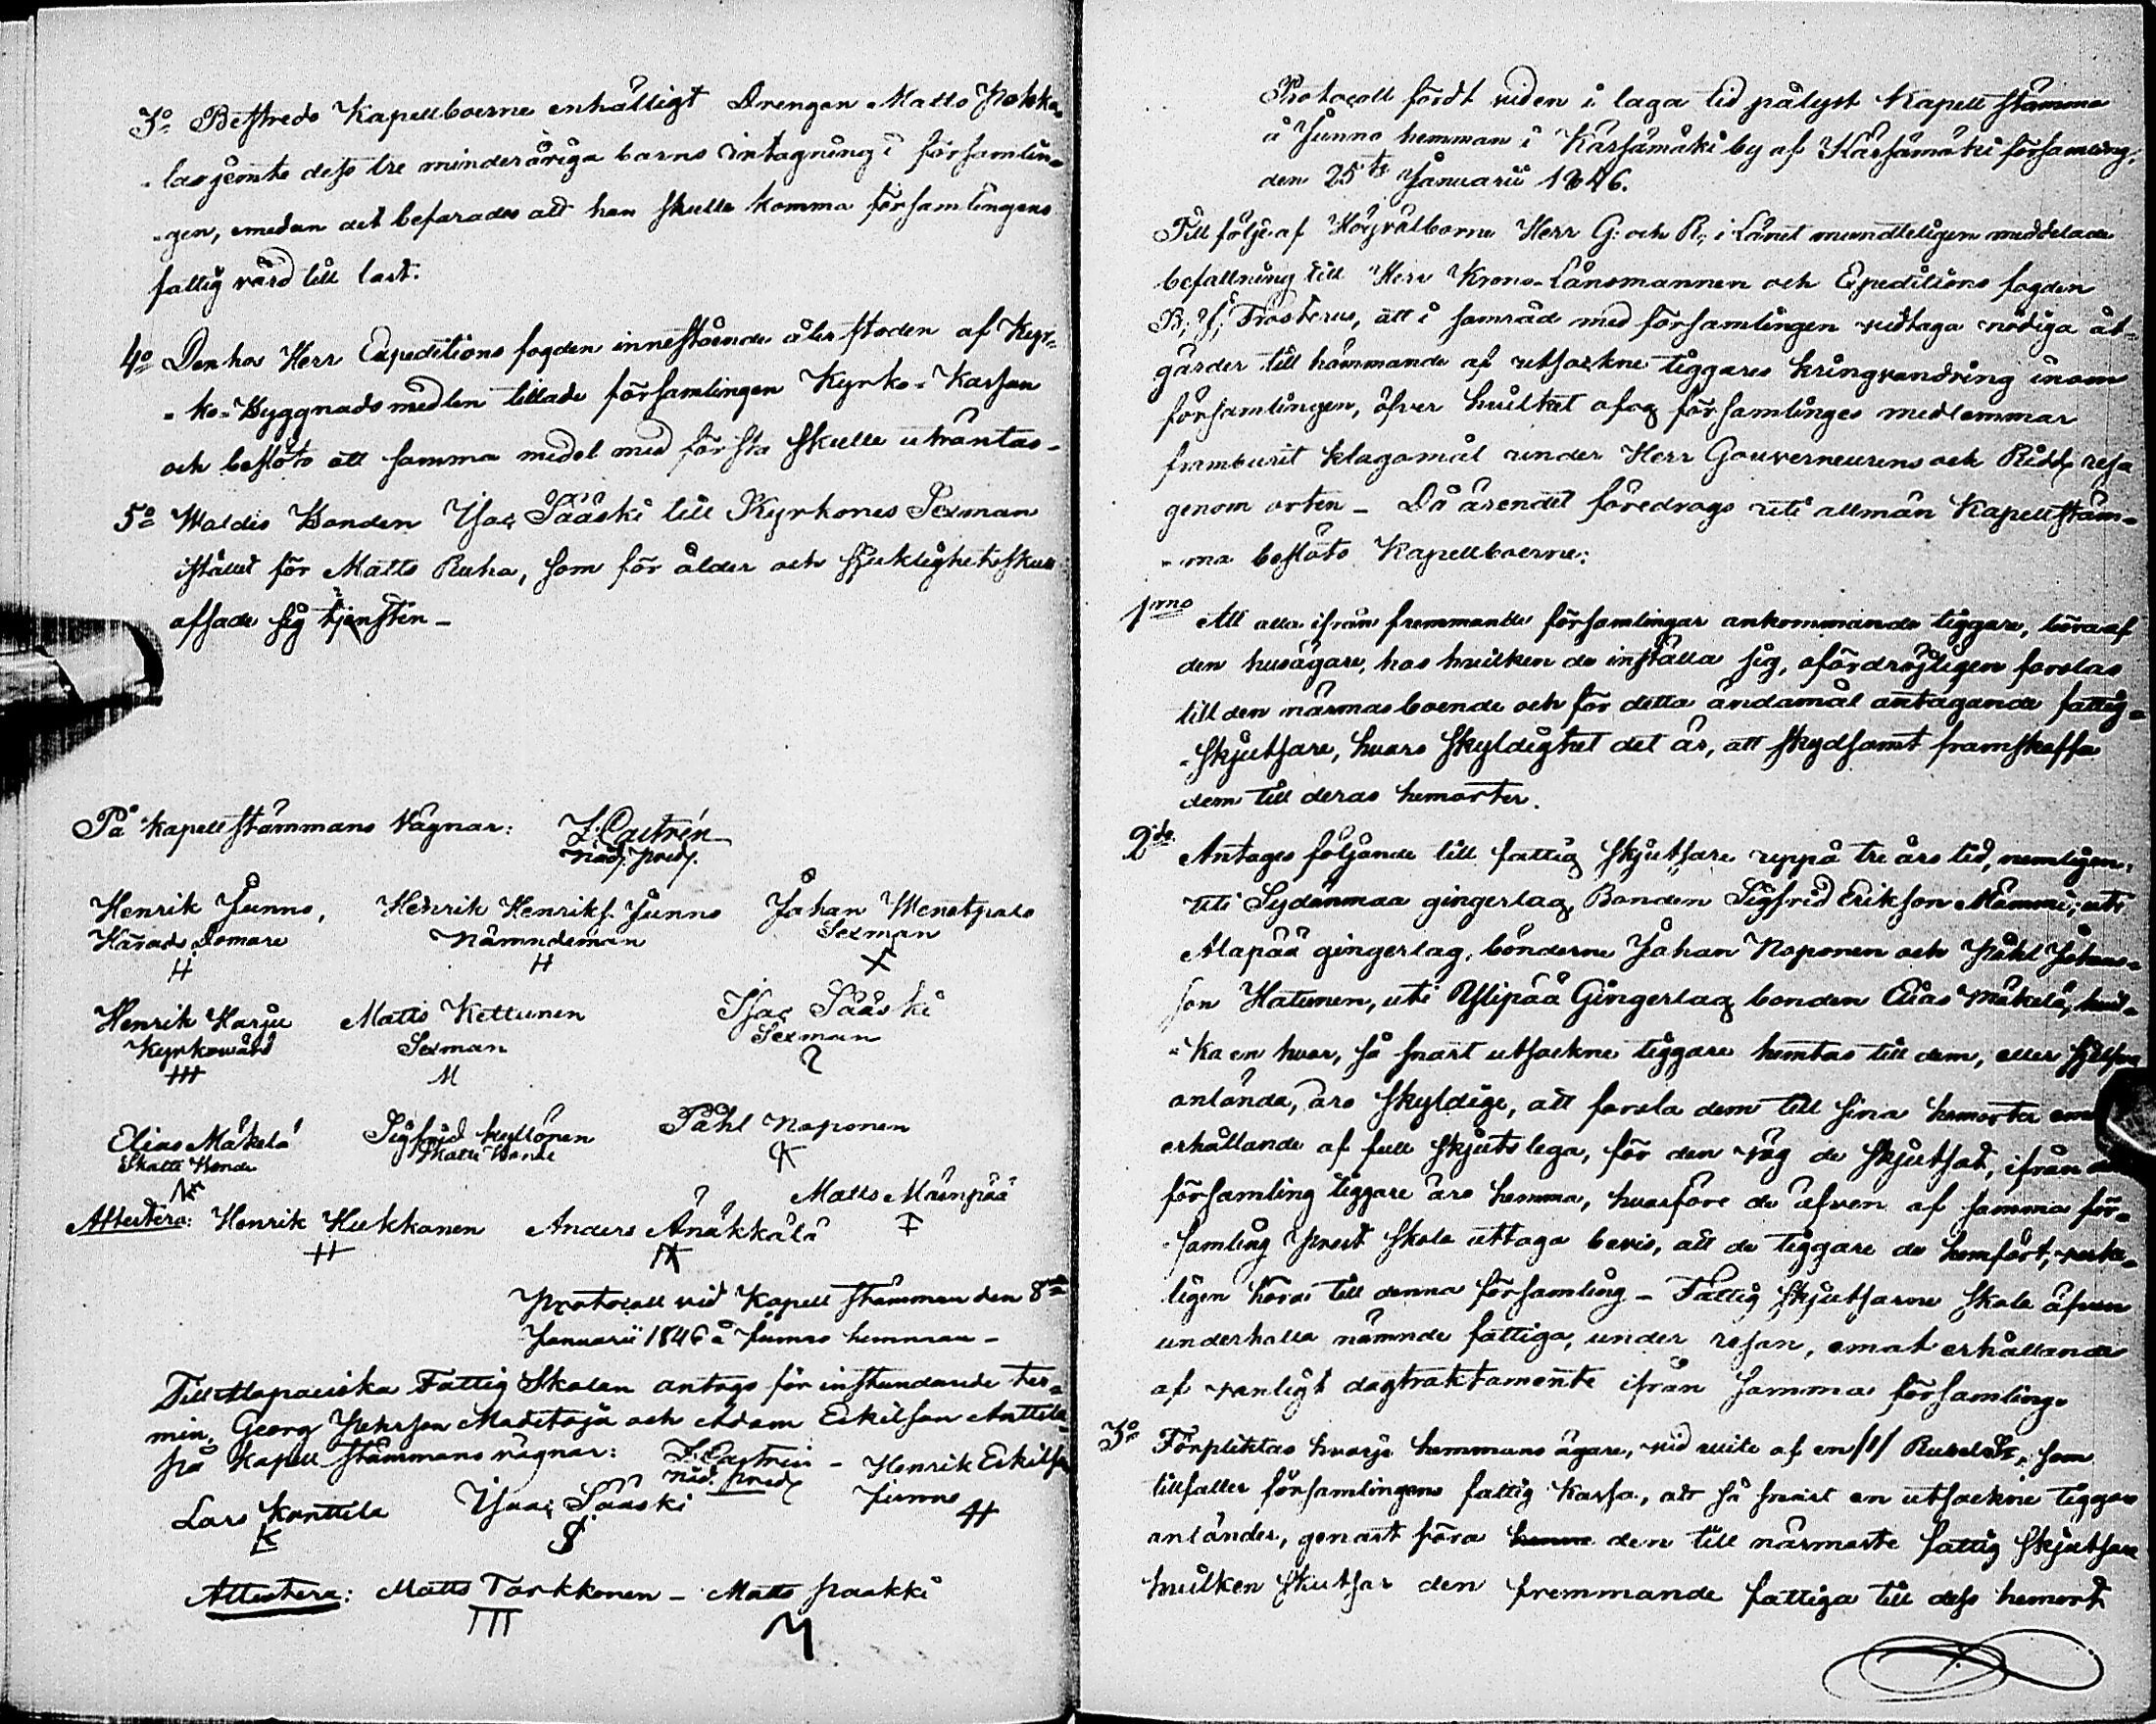 3o Bestreds Kapellboerne enhälligt Drengen Matts Pokka-
-las jemte dess tre minderåriga barns intagning i församlin-
-gen, emedan det befarades att han skulle komma församlingens
fattig vård till last.
4o Den hos Herr Expeditions fogden innestående återstoden af Kyr-
-ko-Byggnads medlen tillade församlingen Kyrko-Kassan
och beslöts att samma medel med första skulle uträntas-
5o Waldes Bonden Isac Sääski till Kyrkones Sexman
istället för Matts Ruha, som för ålder och sjuklighets skull
afsade sig tjensten-
På Kapellstämmans Vägnar: Z. Castrén
Nåd. pred.
Henrik Junno, Henrik Henrikss. Junno Johan Wenetpalo
Härads Domare Nämndeman Sexman
Henrik Karju Matts Kettunen Isac Sääski
Kyrkowärd Sexman Sexman
M
Elias Mäkelä Sigfrid Kyllönen Påhl Noponen
Skatte Bonde Skatte Bonde
Matts Mäenpää
Attestera: Henrik Kukkonen Anders Änäkkälä
Protocoll vid Kapell stämman den 8de
Januarii 1846 å Junno hemman-
Till Alapaiska Fattig Skolan antogs för instundande ter-
min, Georg Pehrsson Madetoja och Adam Eskilson Anttila
på Kapell stämmans vägnar: Z. Castrén - Henrik Eskilss
Nåd. pred. Junno
Lars Konttila Isaac Sääski
K S
Attestera: Matts Tarkkonen - Matts Paakki
Protocoll fördt viden i laga tid pålyst Kapell stämma
å Junno hemman i Kärsämäki by af Kärsämäki församling,
den 25te Januarii 1846.
Till följe af Högvälborne Herr G: och R; i Länet mundteligen meddelade
befallning till Herr Krono-Länsmannen och Expeditions fogden
B; J; Frosterus, att i samråd med församlingen vidtaga nödiga åt-
gärder till hämmande af utsockne tiggares kringvandring inom
församlingen, öfver hvilket ofog församlinges medlemmar
framburit klagomål under Herr Gouverneurens och Ridd; resa
genom orten - Då ärendet föredrogs uti allmän Kapellstäm-
-ma beslöts Kapellboerne:
1mo Att alla ifrån fremmande församlingar ankommande tiggare, böra af
den husägare, hos hvilken de inställa sig, ofördröjligen forslas
till den närmas boende och för detta ändamål antagande fattig-
-skjutsare, hvars skyldighet det är, att skyndsamt framskaffa
dem till deras hemorter.
2do Antages följande till fattig skjutsare uppå tre års tid, nemligen,
uti Sydänmaa gingerlag, Bonden Sigfrid Erikson Mämmi; uti
Alapää gingerlag, bönderne Johan Noponen och Påhl Johans-
son Hatunen, uti Ylipää Gingerlag bonden Elias Mäkelä, hvil-
-ka en hvar, så snart utsockne tiggare hemtas till dem, eller sjelfva
anlända, äro skyldige, att forsla dem till sina hemorter emot
erhållande af full skjutslega, för den väg de skjutsat, ifrån den
församling tiggare äro hemma, hvarföre de äfven af samma för-
-samling Prest skola uttaga bevis, att de tiggare de hemfört, verke-
ligen höra till denna församling - Fattig skjutsarne skola äfven
underhålla nämnde fattiga, under resan, emot erhållande
af vanligt dagtraktamente ifrån samma församling.
3o Förpliktas hvarje hemmans ägare, vid vite af en /1/ Rubel Sr, som
tillfaller församlingens fattig Kassa, att så snart en utsockne tiggare
anländer, genast föra henne den till närmaste fattig skjutsare
hvilken skutsar den fremmande fattiga till dess hemort